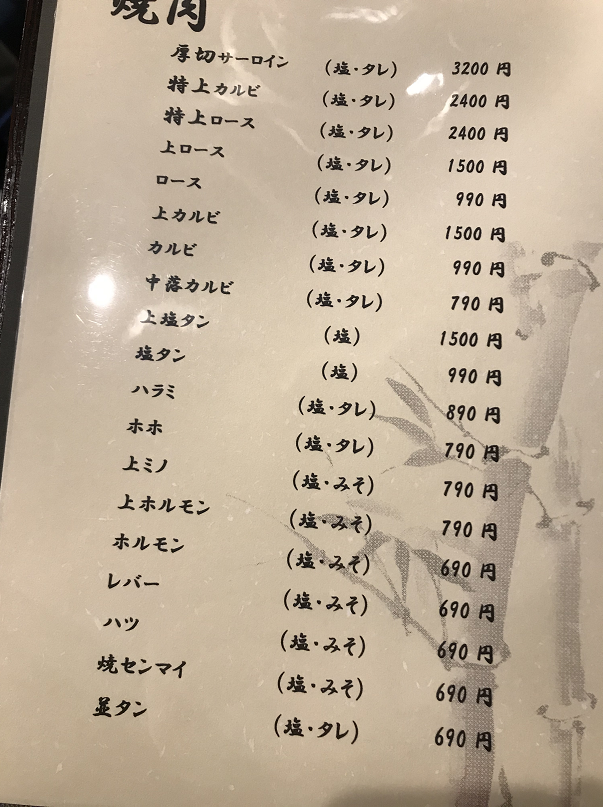 焼肉
厚切サーロイン (塩・タレ) 3200 円
特上カルビ (塩・タレ) 2400 円
特上ロース (塩・タレ) 2400 円
上ロース (塩・タレ) 1500 円
ロース (塩・タレ) 990 円
上カルビ (塩・タレ) 1500 円
カルビ (塩・タレ) 990 円
中落カルビ (塩・タレ) 790 円
上塩タン (塩) 1500 円
塩タン (塩) 990 円
ハラミ (塩・タレ) 890 円
ホホ (塩・タレ) 790 円
上ミノ (塩・みそ) 790 円
上ホルモン (塩・みそ) 790 円
ホルモン (塩・みそ) 690 円
レバー (塩・みそ) 690 円
ハツ (塩・みそ) 690 円
焼センマイ (塩・みそ) 690 円
並タン (塩・タレ) 690 円